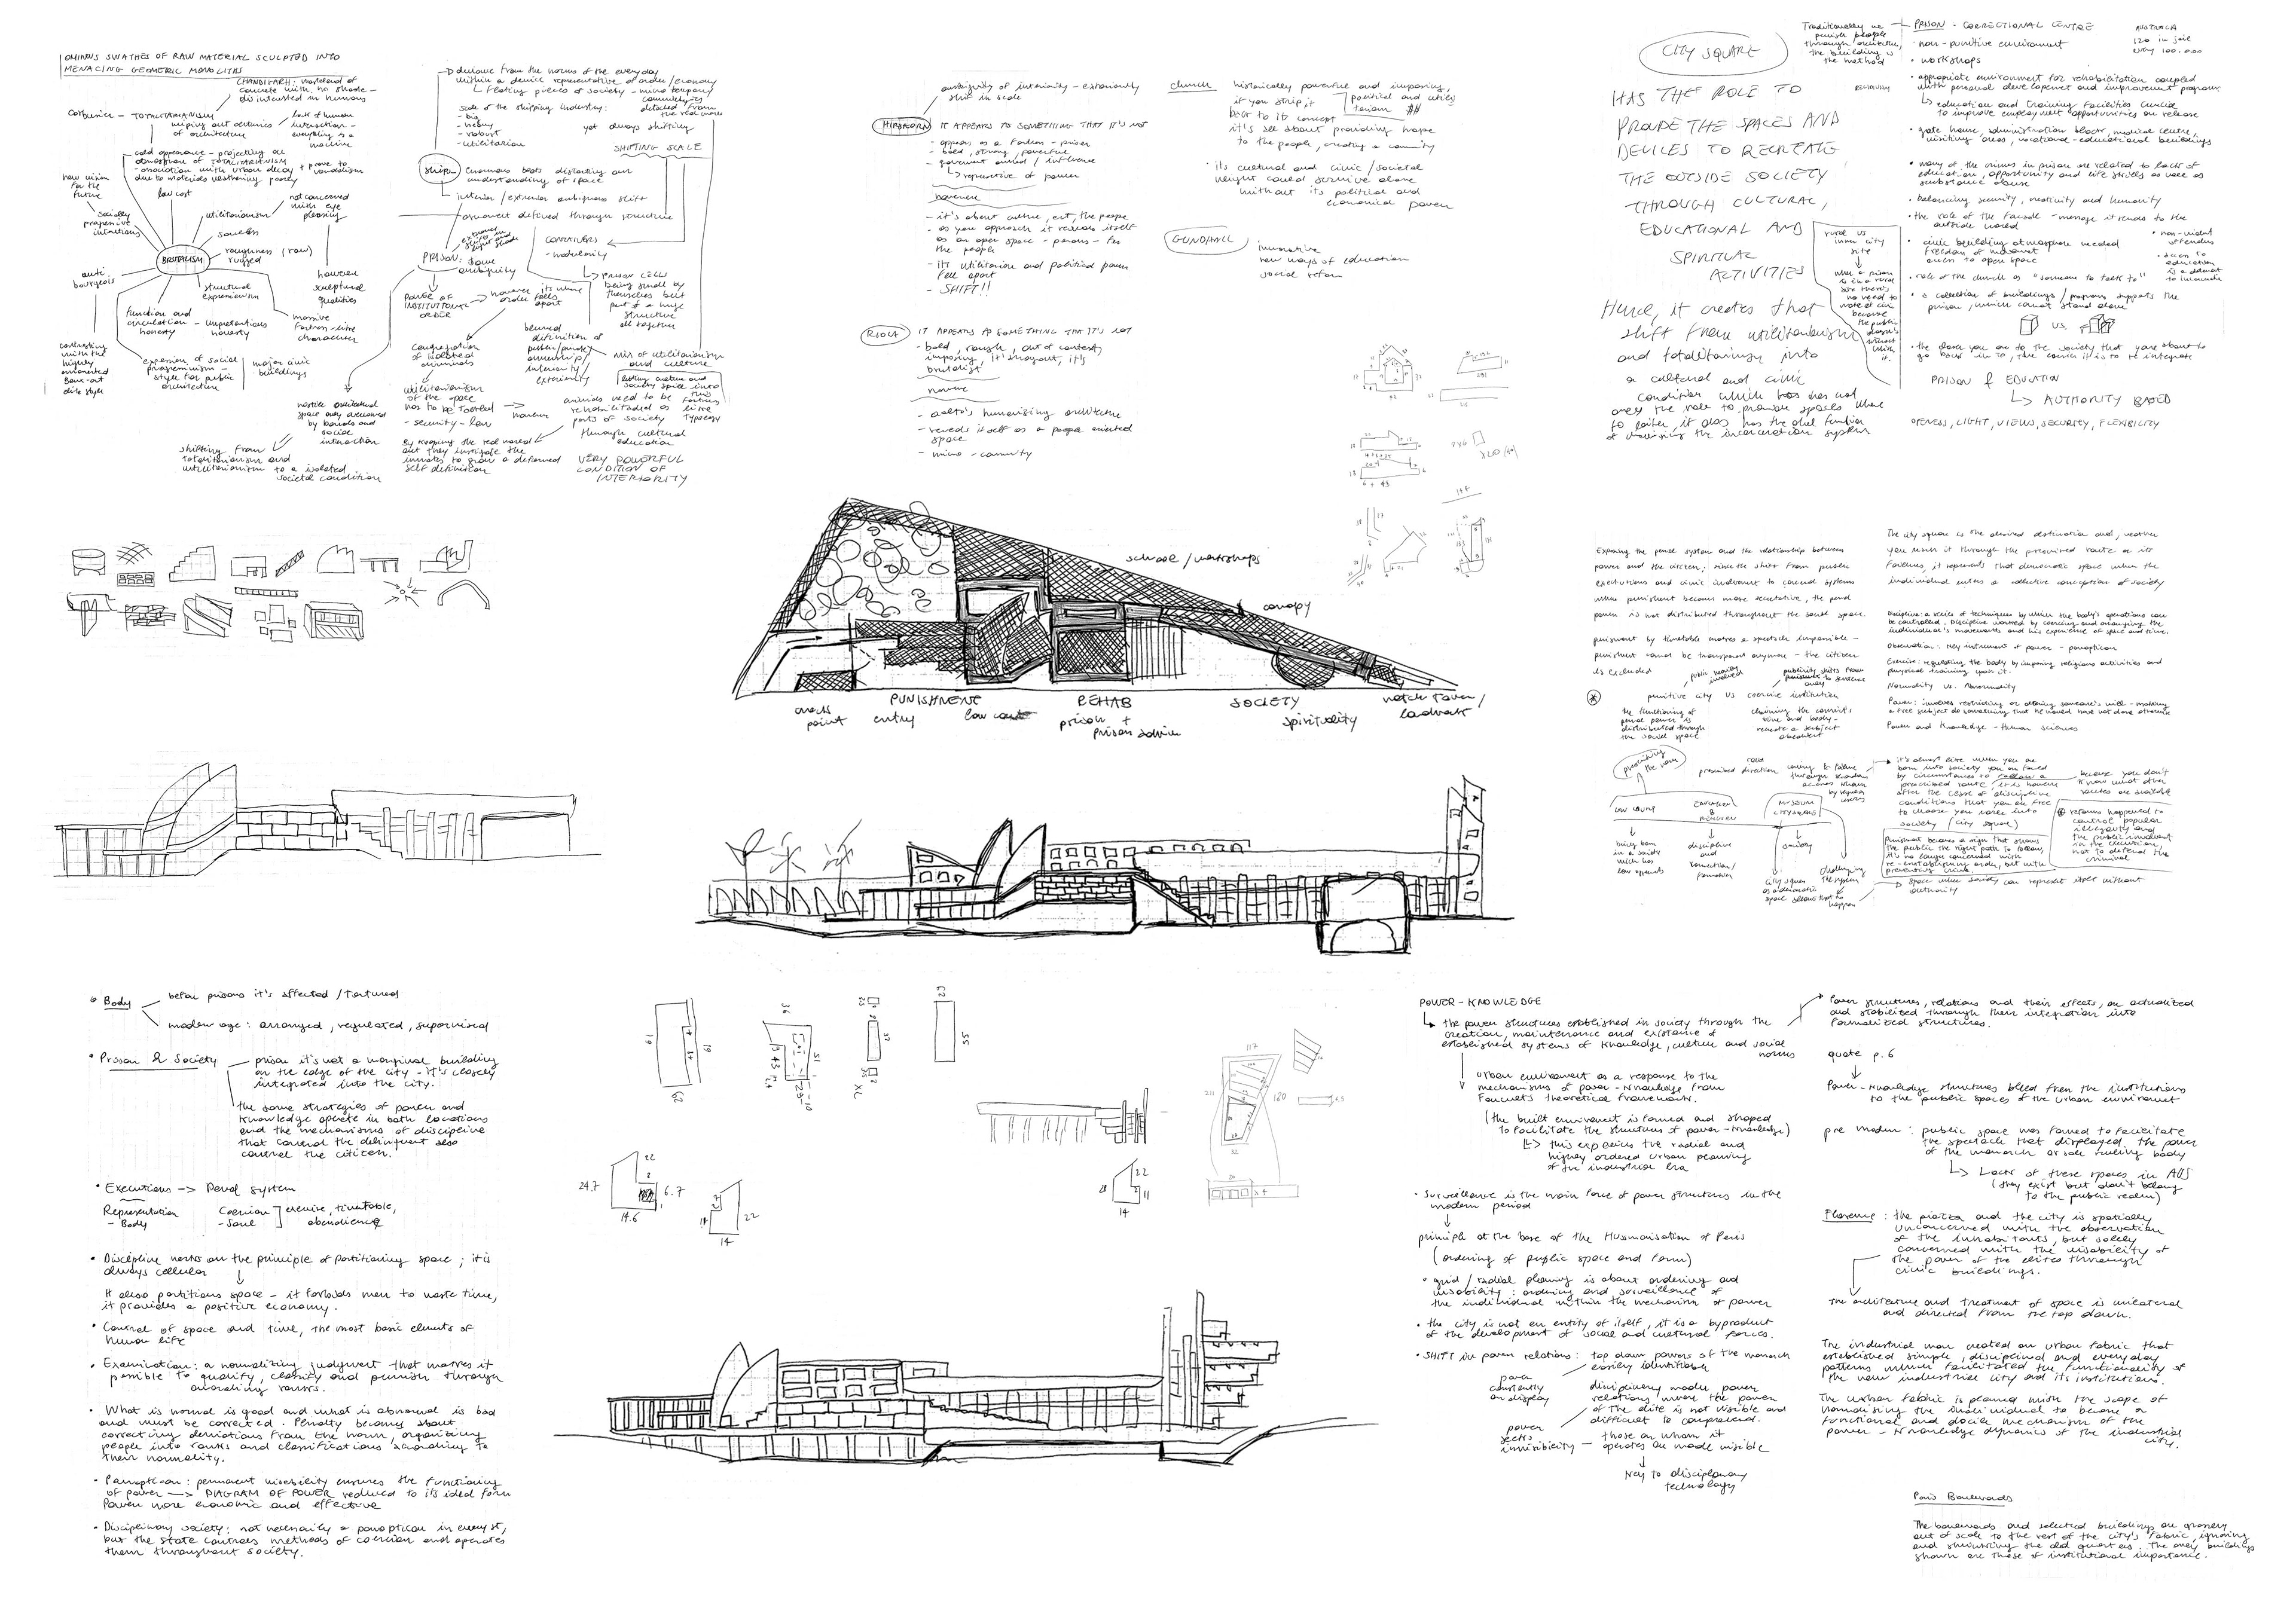 OMINUS SWATHES OF RAW MATERIAL SCULPTED INTO
MENACING GEOMETRIC MONOLITHS
CHANDIGARH: wasteland of
concrete with no shade -
disinterested in humans
Corbusier - TOTALITARIANISM
wiping out centuries
of architecture
lack of human
interaction -
everything is a
machine
cold appearance - projecting an
atmosphere of TOTALITARIANISM
- association with urban decay
due to materials weathering poorly
+ prone to
vandalism
new vision
for the
future
socially
progressive
intentions
low cost
utilitarianism
not concerned
with eye
pleasing
roughness (raw)
rugged
BRUTALISM
anti
bourgeois
structural
expressionism
however
sculptural
qualities
function and
circulation - unpretentious
honesty
honesty
massive
fortress-like
character
contrasting
with the
highly
ornamented
Beaux-art
elite style
expression of social
progressivism -
style for public
architecture
major civic
buildings
shifting from
totalitarianism and
utilitarianism to a isolated
societal condition
deviance from the norms of the everyday
within a device representative of order/economy
floating pieces of society - micro company
scale of the shipping industry:
- big
- heavy
- robust
- utilitarian
yet always shifting
SHIFTING SCALE
Ship
enormous boats distorting our
understanding of space
interior/exterior ambiguous shift
ornament defined through structure
CONTAINERS
- modularity
PRISON: same
ambiguity
PRISON CELLS
being small by
themselves but
part of a huge
structure
all together
POWER OF
INSTITUTIONAL
ORDER
however it's where
order falls
apart
blurred
definition of
public/private
ownership/
interiority/
exteriority
Congregation
of isolated
criminals
mix of utilitarianism
and culture
letting culture and
society spice into
this
fortress
like
typology
utilitarianism
of the space
has to be tackled
- security - low
however
animals need to be
rehabilitated as
parts of society
through cultural
education
By keeping the real world
out they instigate the
inmates to grow a deformed
self definition
VERY POWERFUL
CONDITION OF
INTERIORITY
ambiguity of interiority - exteriority
shift in scale
HIRSHORN
IT APPEARS AS SOMETHING THAT IT'S NOT
- appears as a fortress - prison
- bold, strong, powerful
- government owned / influence
representative of power
however
- it's about culture, art, the people
- as you approach it reveals itself
as an open space - porous - for
the people
- its utilitarian and political power
fall apart
- SHIFT!!
RIOLA
IT APPEARS AS SOMETHING THAT IT'S NOT
- bold, rough, out of context,
imposing, it's
brutalist
however
- aalto's humanising architecture
- reveals itself as a people oriented
space
- micro - community
church
historically powerful and imposing,
if you strip it
back to its concept
political and utilitarianism
$$
it's all about providing hope
to the people, creating a community
its cultural and civic / societal
weight could survive alone
without its political and
economical power
GUNDHALL
innovative
new ways of education
social reform
CITY SQUARE
HAS THE ROLE TO
PROVIDE THE SPACES AND
DEVICES TO RECREATE
THE OUTSIDE SOCIETY
THROUGH CULTURAL,
EDUCATIONAL AND
SPIRITUAL
ACTIVITIES
Hence, it creates that
shift from utilitarianism
and totalitarianism into
a cultural and civic
condition which has not
only the role to provide spaces where
to gather, it also has the dual function
of the incarceration system
rural vs
inner city
site
when a prison
is in a rural
site there's
no need to
make it civic
because
the public
doesn't
interact
with
it.
Traditionally we
punish people
through architecture,
the building is
the method
PRISON - CORRECTIONAL CENTRE
AUSTRALIA
120 in jail
every 100.000
- non-punitive environment
- workshops
- appropriate environment for rehabilitation coupled
with personal development and improvement programs
education and training facilities crucial
to improve employment opportunities on release
- gate house, administration block, medical centre,
visiting areas, vocational-educational buildings
- many of the crimes in prison are related to lack of
education, opportunity and life skills as well as
substance abuse
- balancing security, reactivity and humanity
- the role of the facade - message it sends to the
outside world
- civic building atmosphere needed
freedom of movement
access to open space
- non-violent
offenders
- access to
education
is a
- role of the church as "someone to talk to"
- a collection of buildings / programs supports the
prison, which cannot stand alone
VS.
- the closer you are to the society that you are about to
go back in to, the easier it is to re integrate
PRISON & EDUCATION
AUTHORITY BASED
OPENESS, LIGHT, VIEWS, SECURITY, FLEXIBILITY
school / workshops
canopy
access
point
PUNISHMENT
entry
low court
REHAB
prison +
prison
SOCIETY
spirituality
watch tower /
landmark
Exposing the penal system and the relationship between
power and the citizen; since the shift from public
executions and civic involvement to coercial systems
where punishment becomes more secretative, the penal
power is not distributed throughout the social space.
punishment by timetable makes a spectacle impossible -
punishment cannot be transparent anymore - the citizen
is excluded
public heavily
involved
publicity shifts from
punishment to sentence
punitive city vs coercive institution
the functioning of
penal power is
distributed through
the social space
claiming the convict's
time and body -
recreate a subject
obedient
The city square is the desired destination and, wether
you reach it through the prescribed route or its
failures, it represents that democratic space where the
individual enters a collective conception of society
Discipline: a series of techniques by which the body's operations can
be controlled. Discipline worked by coercing and arranging the
individual's movements and his experience of space and time.
Observation: key instrument of power - panopticon
Exercise: regulating the body by imposing religious activities and
physical training upon it.
Normality vs. Abnormality
Power: involves restricting or altering someone's will - making
a free subject do something that he would have not done otherwise
Power and Knowledge - Human sciences
prescribing
the route
prescribed direction
LAW COURT
EDUCATION
&
RELIGION
MUSEUM
CITY SQUARE
being born
in a society
which has
law systems
discipline
and
formation
society
City square
as a democratic
space allows that to
happen
challenging
the system
it's almost like when you are
born into society you are forced
by circumstances to follow a
prescribed route, it is however
after the cease of discipline
conditions that you are free
to choose your role into
society (city square)
because you don't
know what other
routes are available
reforms happened to
control popular
illegality and
the public involvement
in the execution,
not to defend the
criminal
Punishment becomes a sign that shows
the public the right path to follow,
it's no longer concerned with
re-establishing order, but with
preventing crime.
space where society can represent itself without
authority
Body
before prisons it's affected / tortured
modern age: arranged, regulated, supervised
Prison & Society
prison it's not a marginal building
on the edge of the city - it's closely
integrated into the city.
the same strategies of power and
knowledge operate in both locations
and the mechanisms of discipline
that control the delinquent also
control the citizen.
Executions -> Penal system
Representation
- Body
Coercion
- Soul
exercise, timetable,
obendience
Discipline works on the principle of partitioning space; it is
always cellular
It also partitions space - it forbids men to waste time,
it provides a positive economy.
Control of space and time, the most basic elements of
human life
Examination: a normalizing judgment that makes it
possible to qualify, classify and punish through
awarding ranks.
What is normal is good and what is abnormal is bad
and must be corrected. Penalty becomes about
correcting deviations from the norm, organising
people into ranks and classifications according to
their normality.
Panopticon: permanent visability ensures the functioning
of power -> DIAGRAM OF POWER reduced to its ideal form
Power more economic and effective
Disciplinary society: not necessarily a panopticon in every st,
but the state controls methods of coercion and operates
them throughout society.
24.7
22
6.7
14.6
22
14
22
11
14
117
180
POWER - KNOWLEDGE
the power structures established in society through the
creation, maintenance and existance of
established systems of knowledge, culture and social
norms
urban environment as a response to the
mechanisms of power - knowledge from
Foucault's theoretical framework.
(the built environment is formed and shaped
to facilitate the structures of power - knowledge)
this explains the radial and
highly ordered urban planning
of the industrial era
Surveillance is the main force of power structures in the
modern period
principle at the base of the Hussmanisation of Paris
(ordering of public space and form)
grid / radial planning is about ordering and
visability: ordering and surveillance of
the individual within the mechanism of power
the city is not an entity of itself, it is a byproduct
of the development of social and cultural forces.
SHIFT in power relations: top down powers of the monarch
easily identifiable
power
constantly
on display
disciplinary mode, power
relations where the power
of the elite is not visible and
difficult to comprehend.
power
seeks
invisibility -
those on whom it
operates are made visible
key to disciplinary
technology
Power structures, relations and their effects, are actualized
and stabilized through their integration into
formalized structures.
quote p. 6
Power - Knowledge structures bleed from the institutions
to the public spaces of the urban environment
pre modern: public space was formed to facilitate
the spectacle that displayed the power
of the monarch or sole ruling body
Lack of these spaces in AUS
(they exist but don't belong
to the public realm)
Florence: the piazza and the city is spatially
unconcerned with the observation
of the inhabitants, but solely
concerned with the visability of
the power of the elites through
civic buildings.
The architecture and treatment of space is unilateral
and directed from the top down.
The industrial man created an urban fabric that
established simple, disciplined and everyday
patterns which facilitated the functionality of
the new industrial city and its institutions.
The urban fabric is planned with the scope of
normalising the individual to become a
functional and docile mechanism of the
power - knowledge dynamics of the industrial
city.
Paris Boulevards
The boulevards and selected buildings are grossly
out of scale to the rest of the city's fabric, ignoring
and shrinking the old quarters. The only buildings
shown are those of institutional importance.